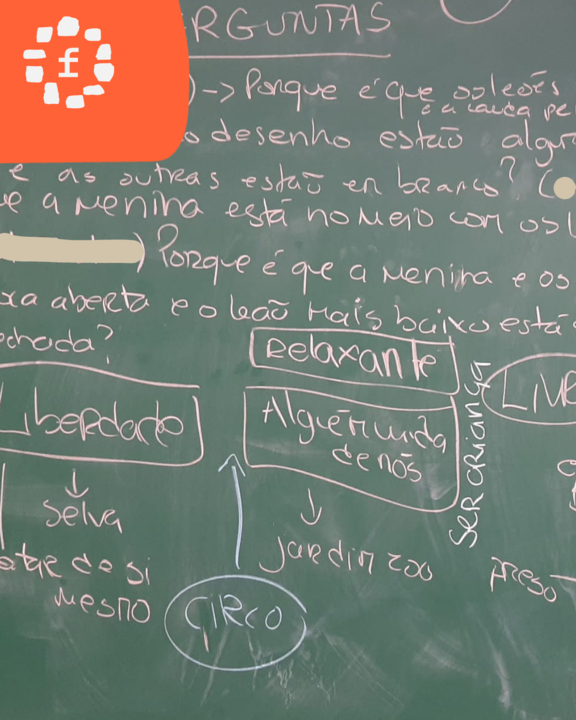 f
RGUNTAS
) -> Porque é que os leões
e a
o desenho estão
e as outras estão em branco? (
ue a menina está no meio com os
) Porque é que a menina e os
xa aberta e o leão mais baixo está
echada?
Relaxante
Liberdade
Alguém cuida
de nós
SER CRIANÇA
LIV
selva
jardim zoo
preso
de si
mesmo
CIRCO